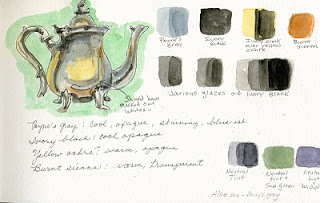 Payne's Grey
Ivory Black
Ivory black over yellow ochre
Burnt Sienna
Should have masked out whites -
Various glazes of Ivory Black
Payne's gray: cool, opaque, staining, blueish
Ivory black: cool, opaque
Yellow ochre: warm, opaque
Burnt sienna: warm, transparent
Neutral Tint
Neutral tint + Sap Green
Neutral tint +
Also see - Davy's gray